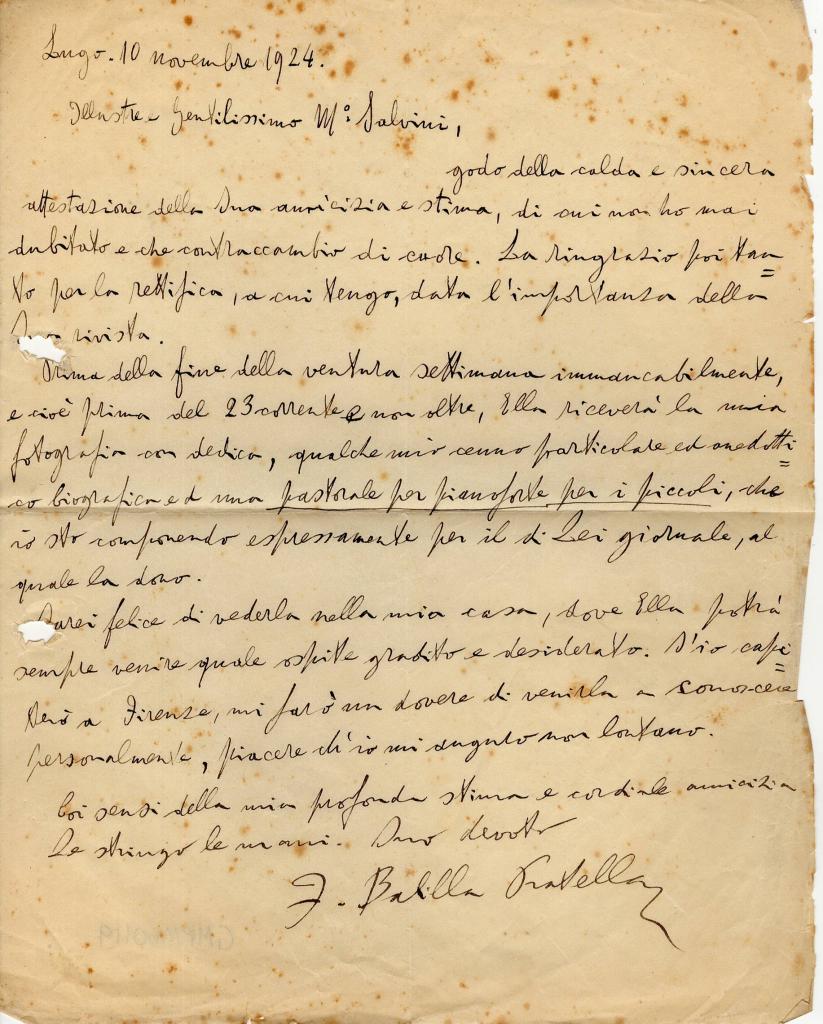 Lugo. 10 novembre 1924.
Illustre e Gentilissimo Mº Salvini,
godo della calda e sincera
attestazione della Sua amicizia e stima, di cui non ho mai
dubitato e che contraccambio di cuore. La ringrazio poi tan=
to per la rettifica, a cui tengo, data l'importanza della
Sua rivista.
Prima della fine della ventura settimana immancabilmente,
e cioè prima del 23 corrente e non oltre, Ella riceverà la mia
fotografia con dedica, qualche mio cenno particolare ed anedotti=
co biografico ed una pastorale per pianoforte per i piccoli, che
io sto componendo espressamente per il di Lei giornale, al
quale la dono.
Sarei felice di vederla nella mia casa, dove Ella potrà
sempre venire quale ospite gradito e desiderato. S'io capi=
terò a Firenze, mi farò un dovere di venirla a conoscere
personalmente, piacere ch'io mi auguro non lontano.
Coi sensi della mia profonda stima e cordiale amicizia
Le stringo le mani. Suo devoto
F. Balilla Pratella